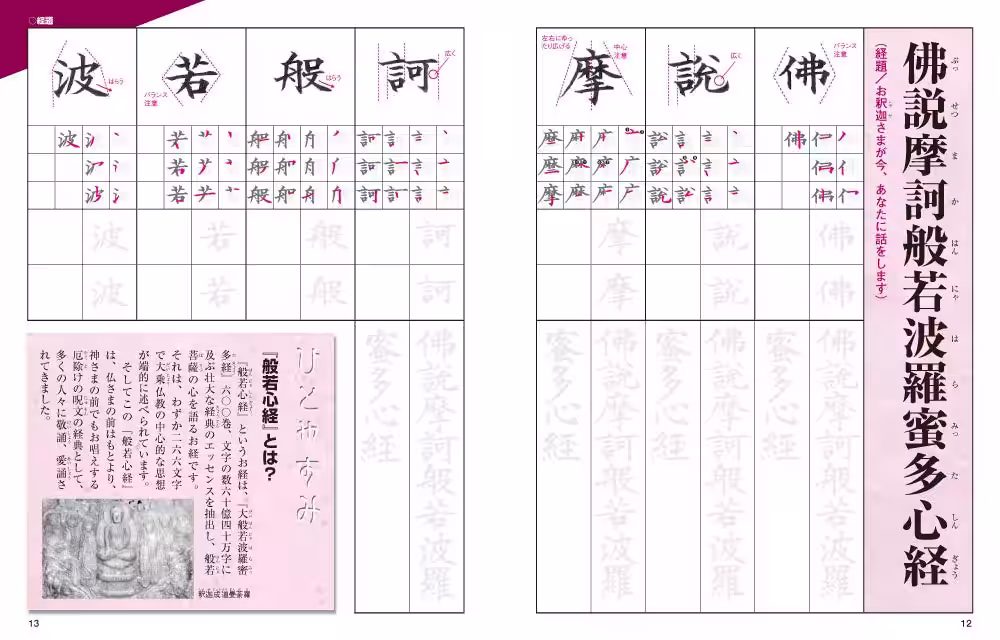 佛説摩訶般若波羅蜜多心経
ぶっ せつ ま か はん にゃ は ら みっ た しん ぎょう
(経題/お釈迦さまが今、あなたに話をします)
佛
バランス
注意
説
広く
摩
左右にゆっ
たり広げる
中心
注意
佛説摩訶般若波羅
蜜多心経
佛説摩訶般若波羅
蜜多心経
佛説摩訶般若波羅
蜜多心経
12
♡経題
訶
広く
般
はらう
若
バランス
注意
波
はらう
佛説摩訶般若波羅
蜜多心経
ひとやすみ
『般若心経』とは?
『般若心経』というお経は、『大般若波羅蜜
多経』六〇〇巻、文字の数六十億四十万字に
及ぶ壮大な経典のエッセンスを抽出し、般若
菩薩の心を語るお経です。
それは、わずか二六六文字
で大乗仏教の中心的な思想
が端的に述べられています。
そしてこの『般若心経』
は、仏さまの前はもとより、
神さまの前でもお唱えする
厄除けの呪文の経典として、
多くの人々に敬誦、愛誦さ
れてきました。
釈迦成道曼荼羅
13